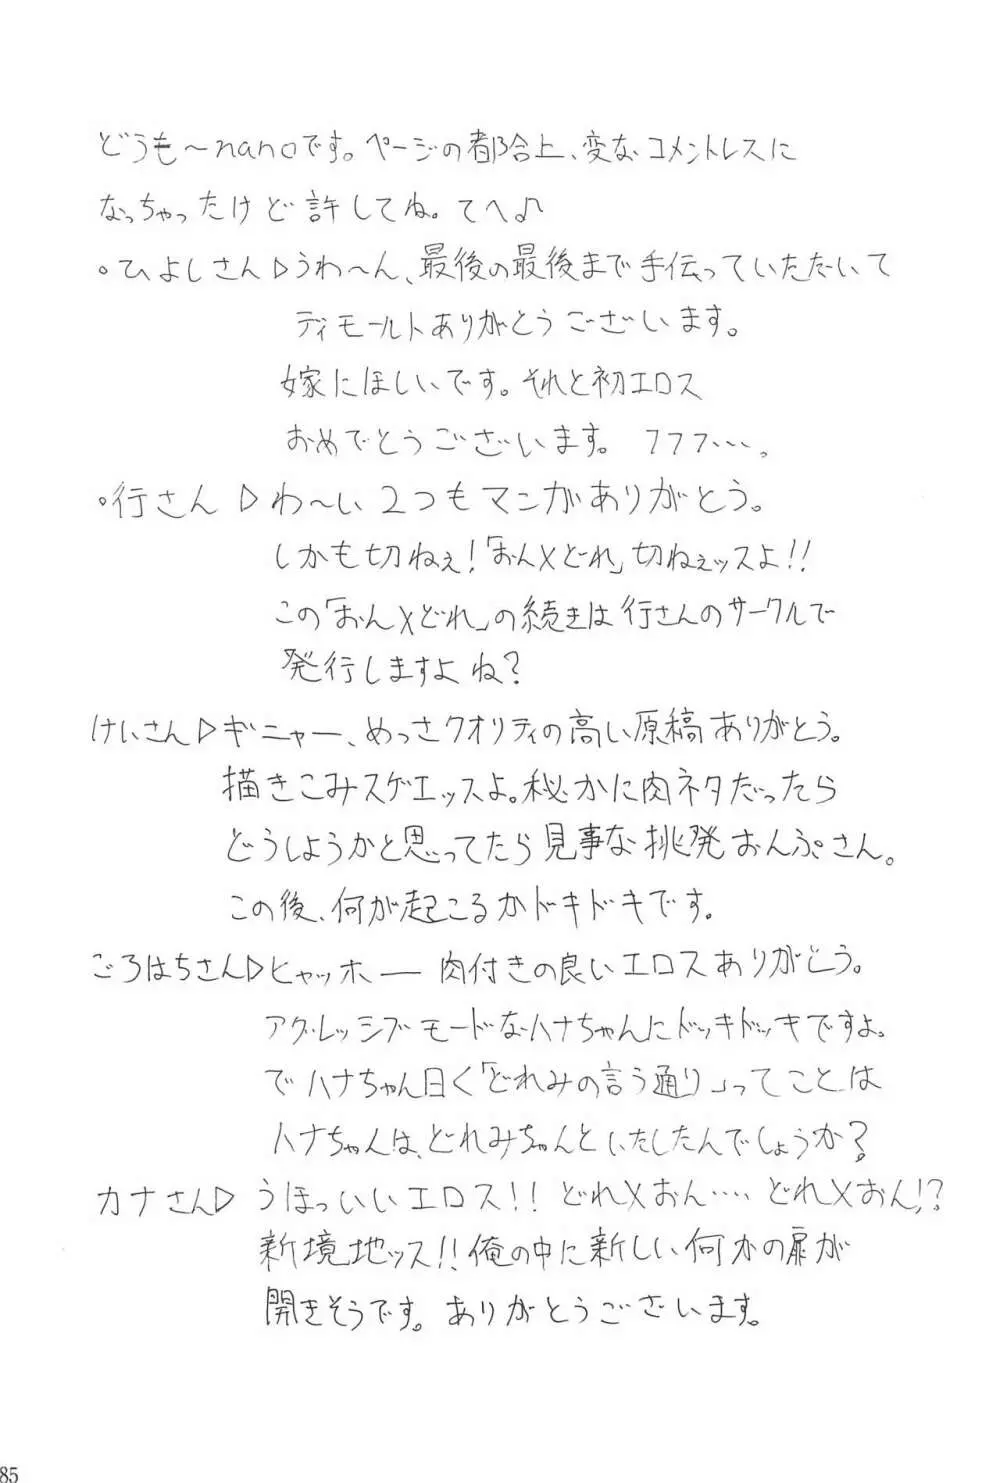 どうも〜nanoです。ページの都合上、変なコメントレスに
なっちゃったけど許してね。てへ♪
。ひよしさん▷うわ〜ん、最後の最後まで手伝っていただいて
ディモールトありがとうございます。
嫁にほしいです。それと初エロス
おめでとうございます。フフフ…。
。行さん▷わ〜い2つもマンガありがとう。
しかも切ねぇ!「おん×どれ」切ねぇッスよ!!
この「おん×どれ」の続きは行さんのサークルで
発行しますよね?
けいさん▷ギニャー、めっさクオリティの高い原稿ありがとう。
描きこみスゲエッスよ。秘かに肉ネタだったら
どうしようかと思ってたら見事な挑発おんぷさん。
この後、何が起こるかドキドキです。
ごろはちさん▷ヒャッホー 肉付きの良いエロスありがとう。
アグレッシブモードなハナちゃんにドッキドッキですよ。
でハナちゃん曰く「どれみの言う通り」ってことは
ハナちゃんは、どれみちゃんといたしたんでしょうか?
カナさん▷うほっいいエロス!!どれ×おん‥‥どれ×おん!?
新境地ッス!!俺の中に新しい何かの扉が
開きそうです。ありがとうございます。
85